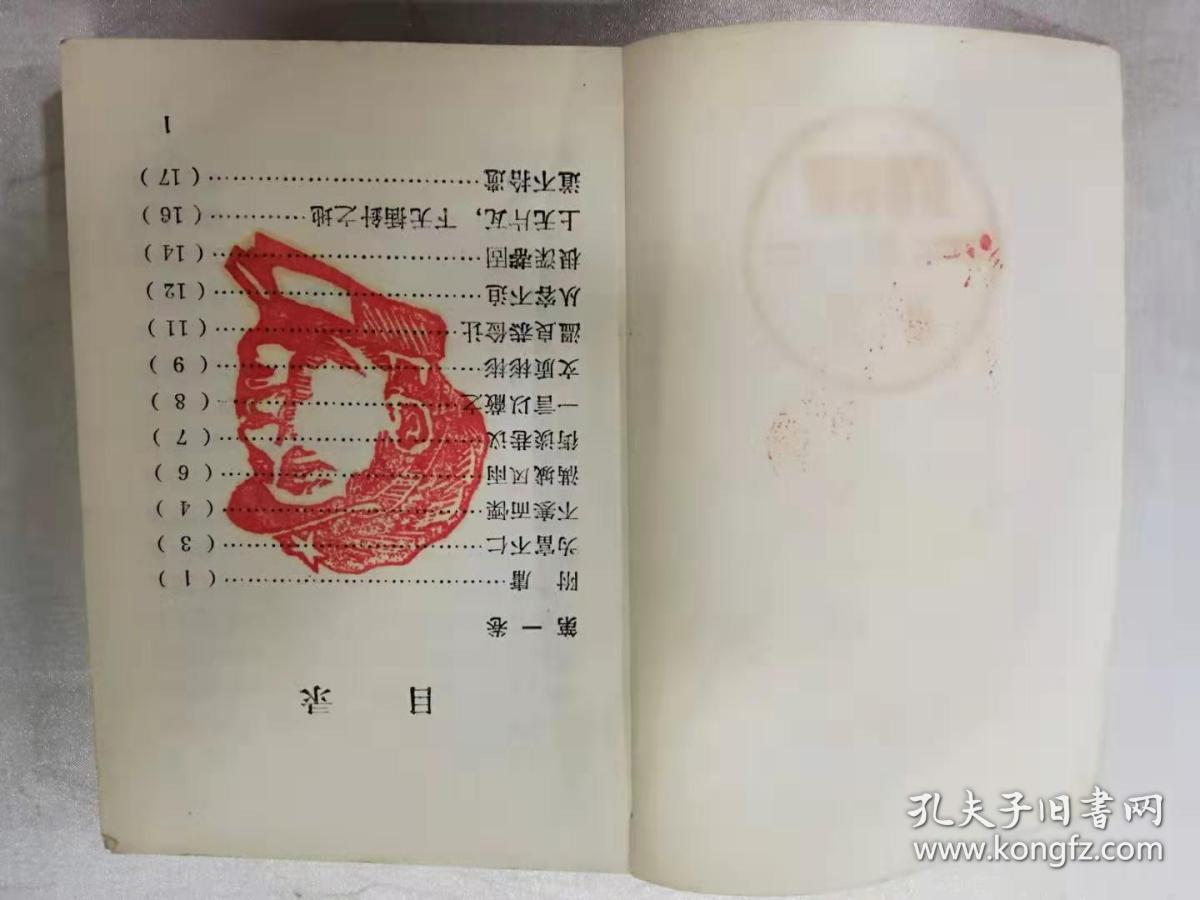 目 录
第 一 卷
附 庸……………………………( 1 )
为富不仁…………………………( 3 )
不寒而慄…………………………( 4 )
满城风雨…………………………( 6 )
街谈巷议…………………………( 7 )
一言以蔽之………………………( 8 )
文质彬彬…………………………( 9 )
温良恭俭让………………………( 11 )
从容不迫…………………………( 12 )
根深蒂固…………………………( 14 )
上无片瓦，下无插針之地…………( 16 )
道不拾遗…………………………( 17 )
1
孔夫子旧书网
www.kongfz.com